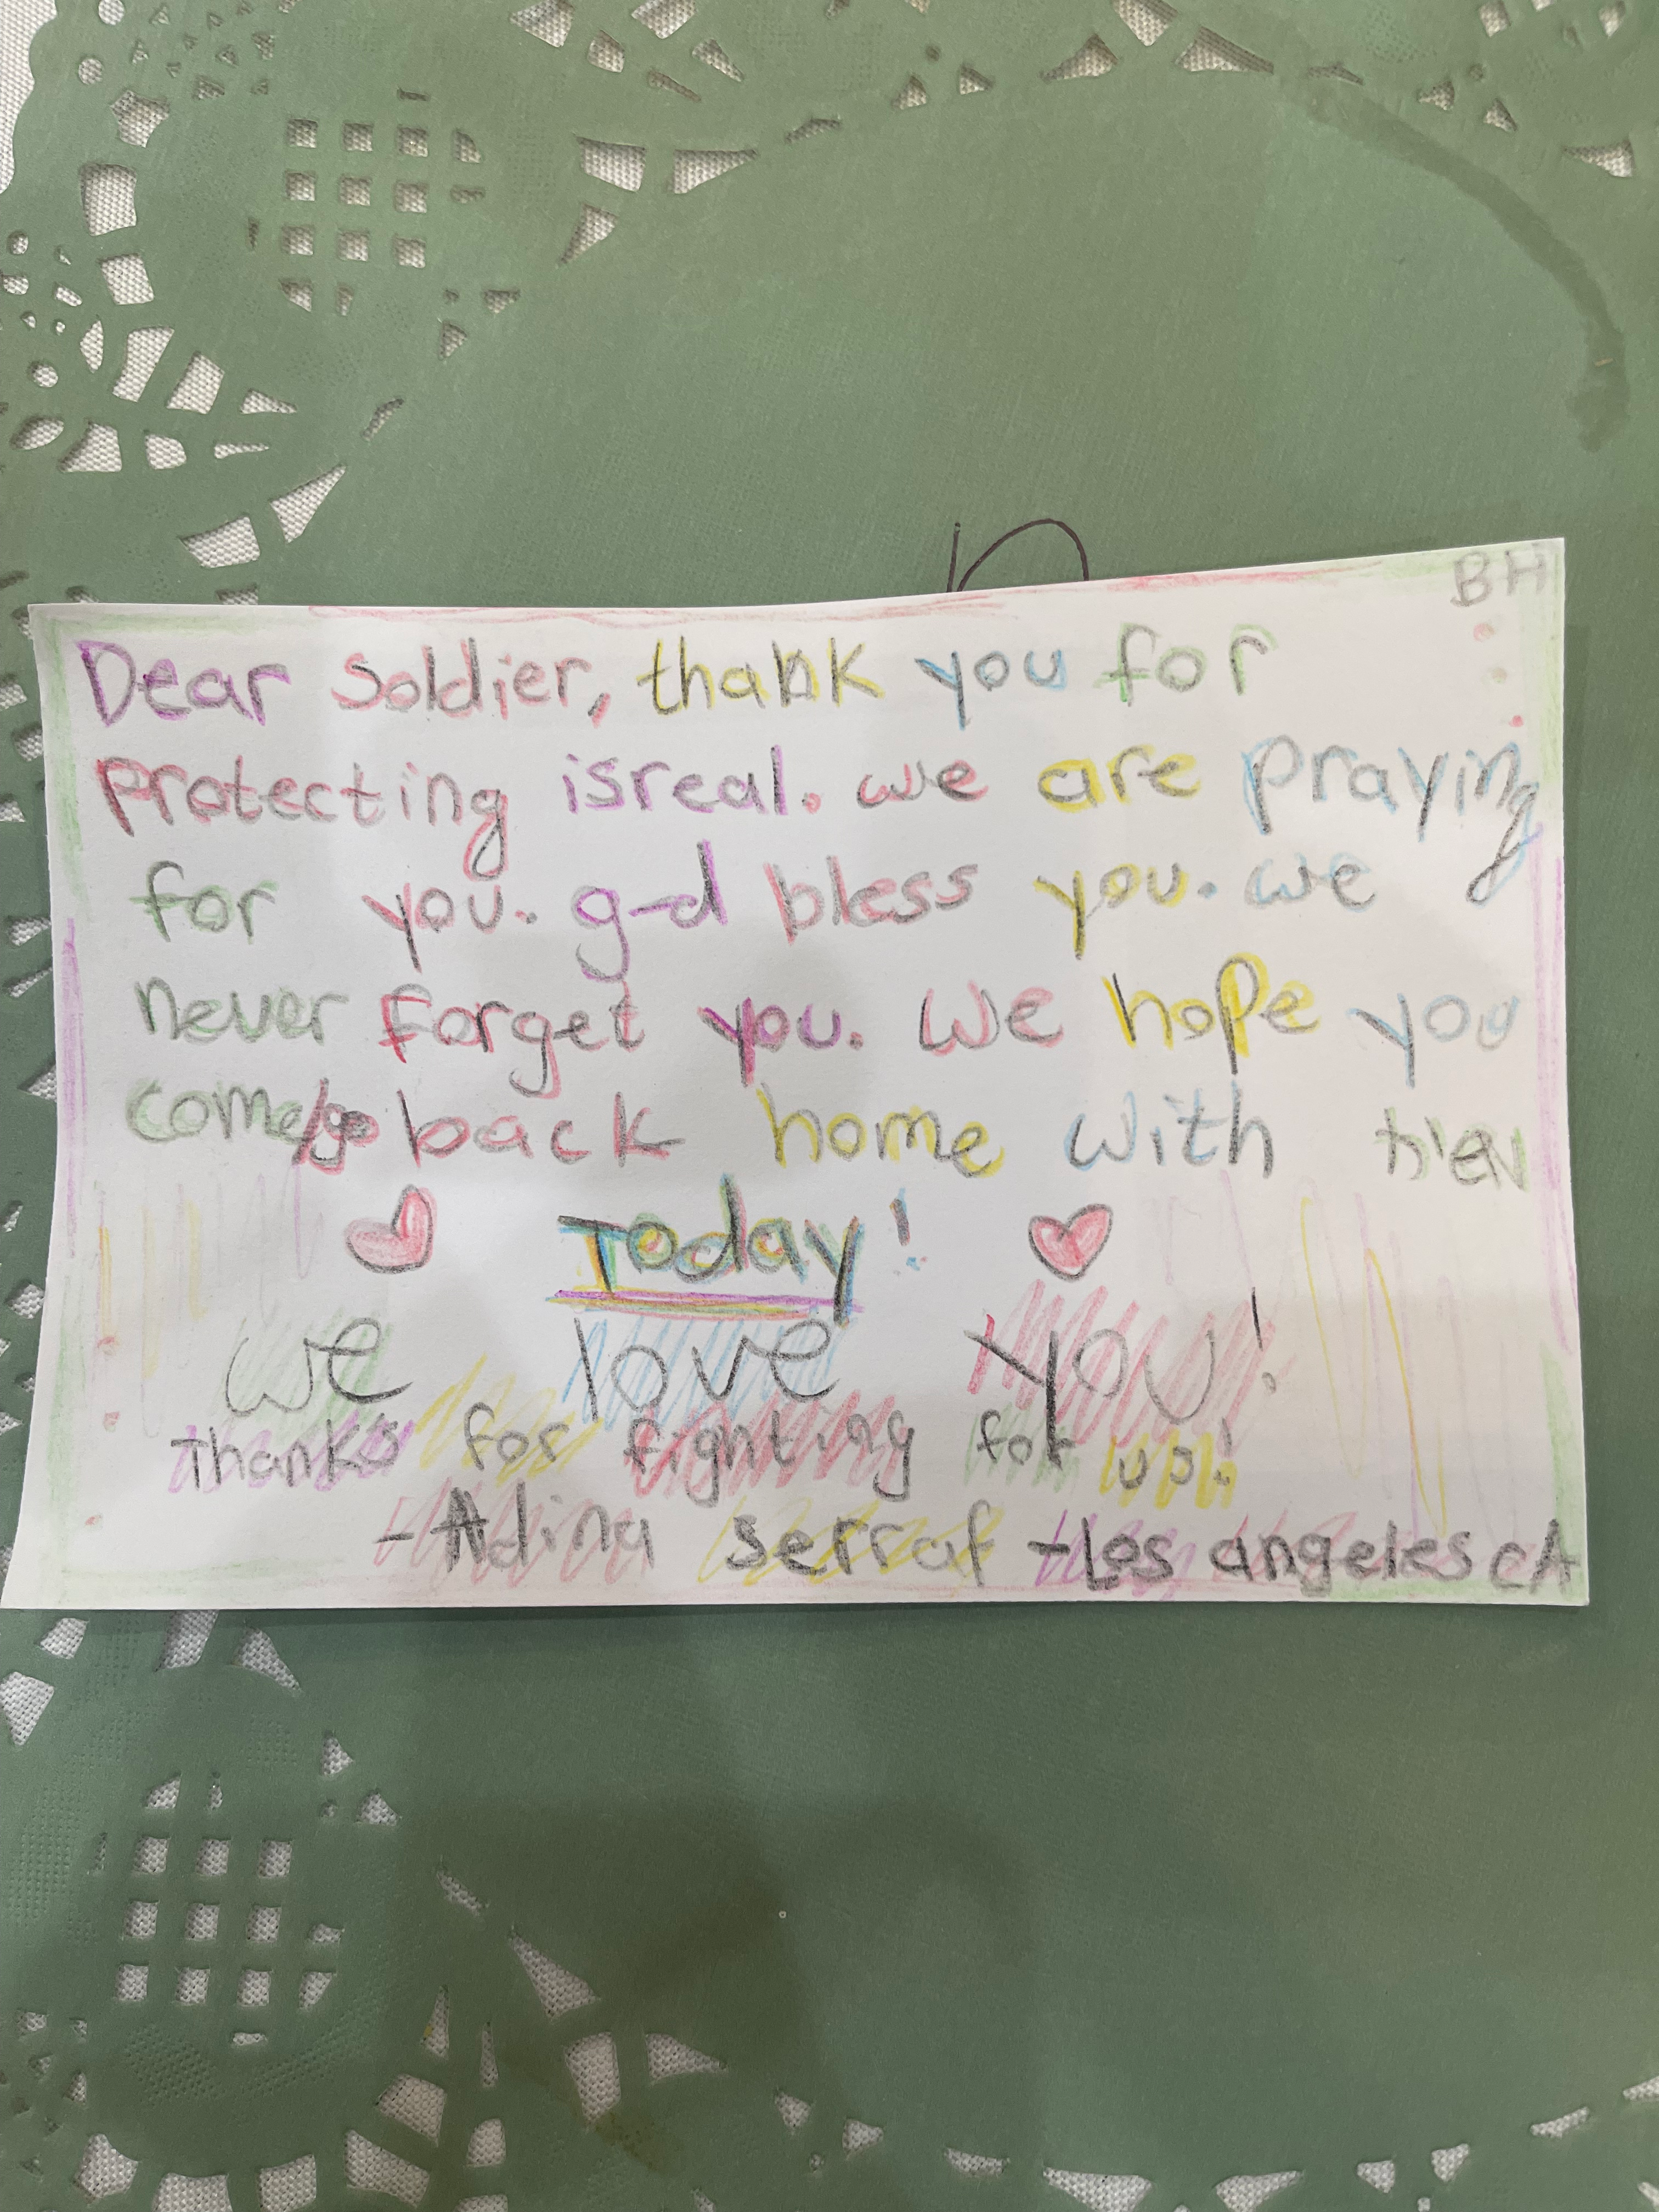 BH
Dear Soldier, thank you for
protecting isreal. we are praying
for you. g-d bless you. we
never forget you. We hope you
come/go back home with משיח
Today!
we love you!
Thanks for fighting for us!
-Adina Serraf -Los angeles CA